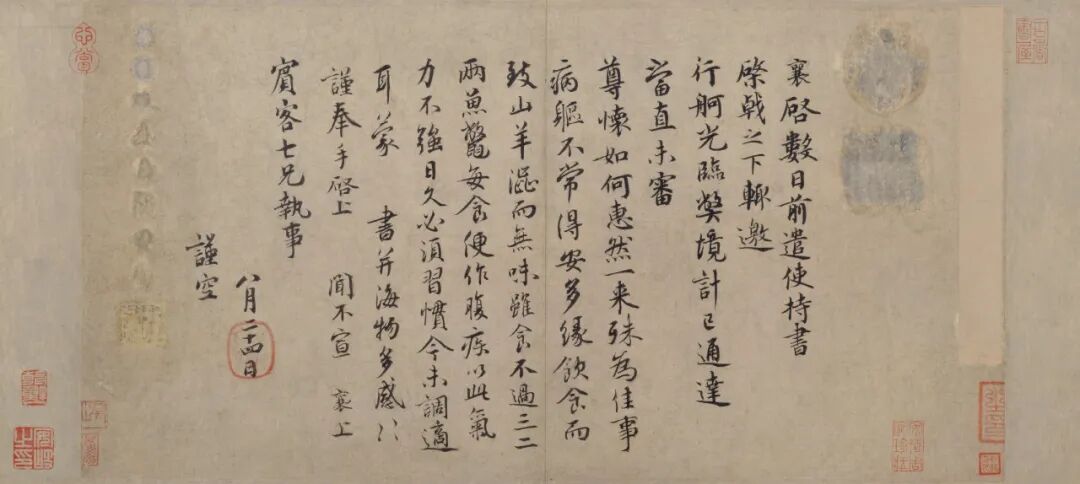 襄啓數日前遣使持書
棨戟之下輒邀
行舸光臨弊境計已通達
當直未審
尊懷如何惠然一來殊為佳事
病軀不常得安多緣飲食而
致山羊澀而無味雖食不過三二
兩魚鱉每食便作腹疾以此氣
力不強日久必須習慣今未調適
耳蒙 書并海物多感々
謹奉手啓上 聞不宣 襄上
賓客七兄執事
八月二十四日
謹空